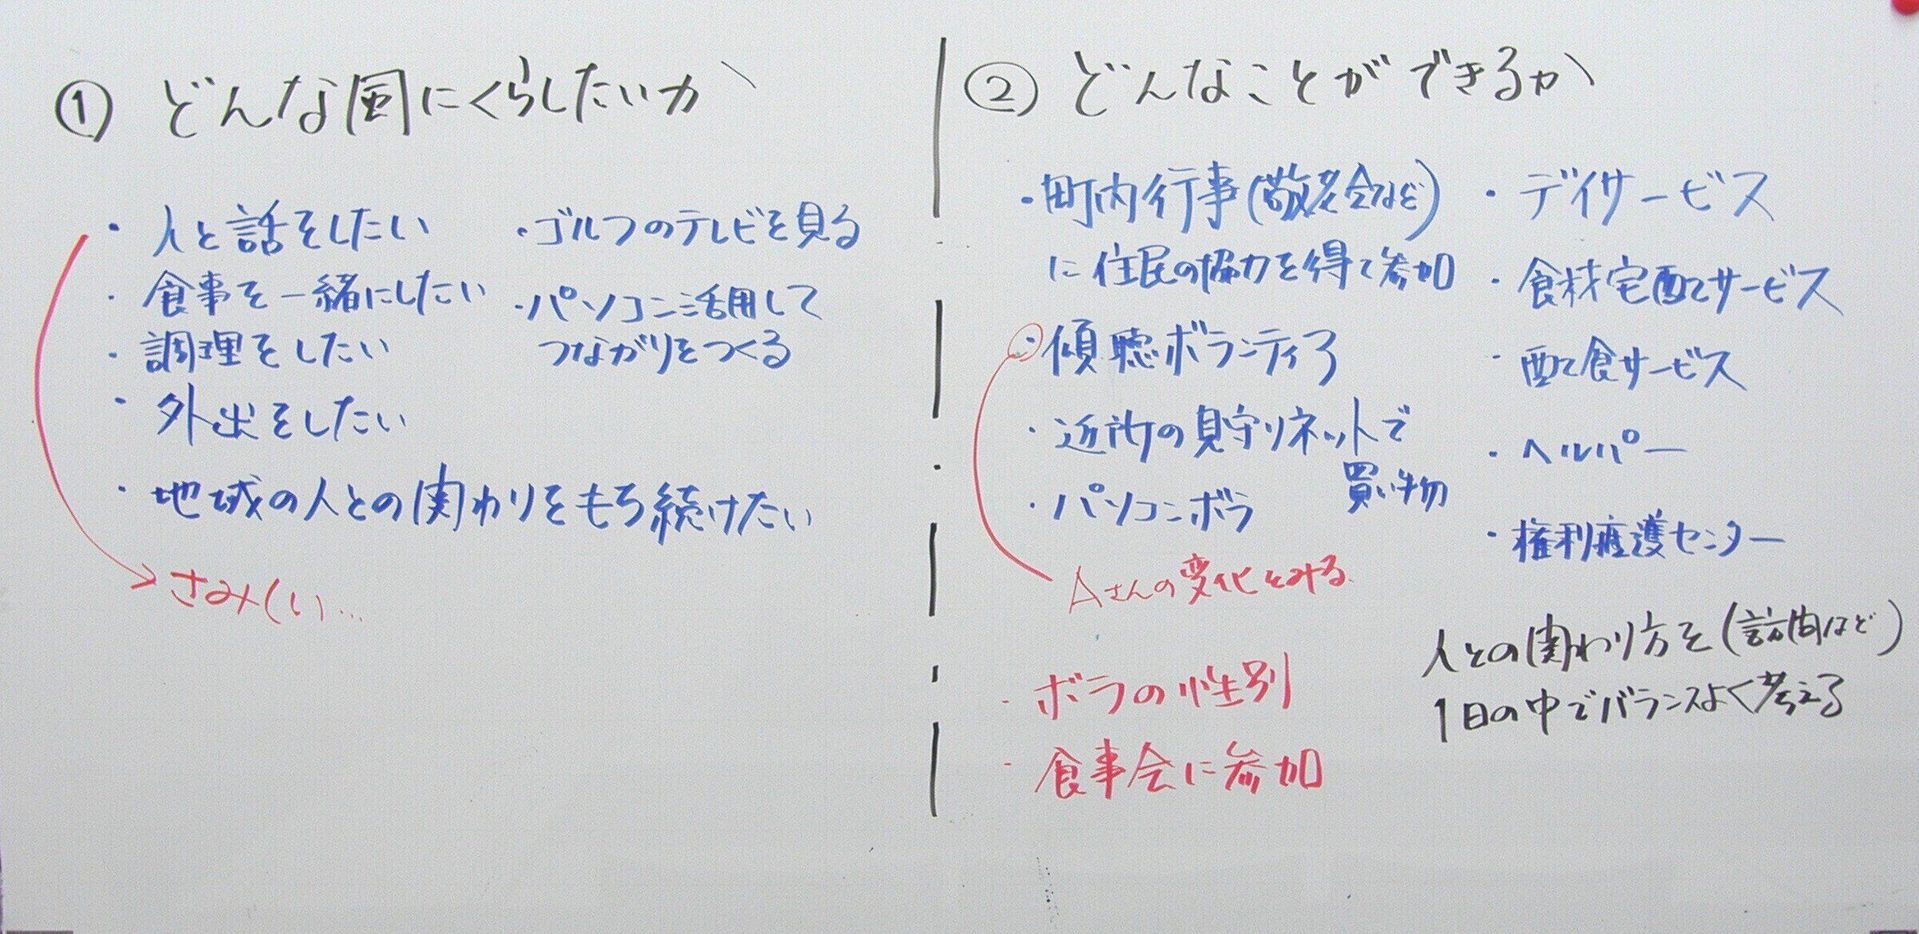 ① どんな風にくらしたいか
・人と話をしたい
・食事を一緒にしたい
・調理をしたい
・外出をしたい
・地域の人との関わりをもち続けたい
さみしい…
・ゴルフのテレビを見る
・パソコン活用して
つながりをつくる
② どんなことができるか
・町内行事(敬老会など)
に住民の協力を得て参加
・傾聴ボランティア
・近所の見守りネットで
買い物
・パソコンボラ
Aさんの変化をみる
・ボラの性別
・食事会に参加
・デイサービス
・食材宅配サービス
・配食サービス
・ヘルパー
・権利擁護センター
人との関わり方を(訪問など)
1日の中でバランスよく考える